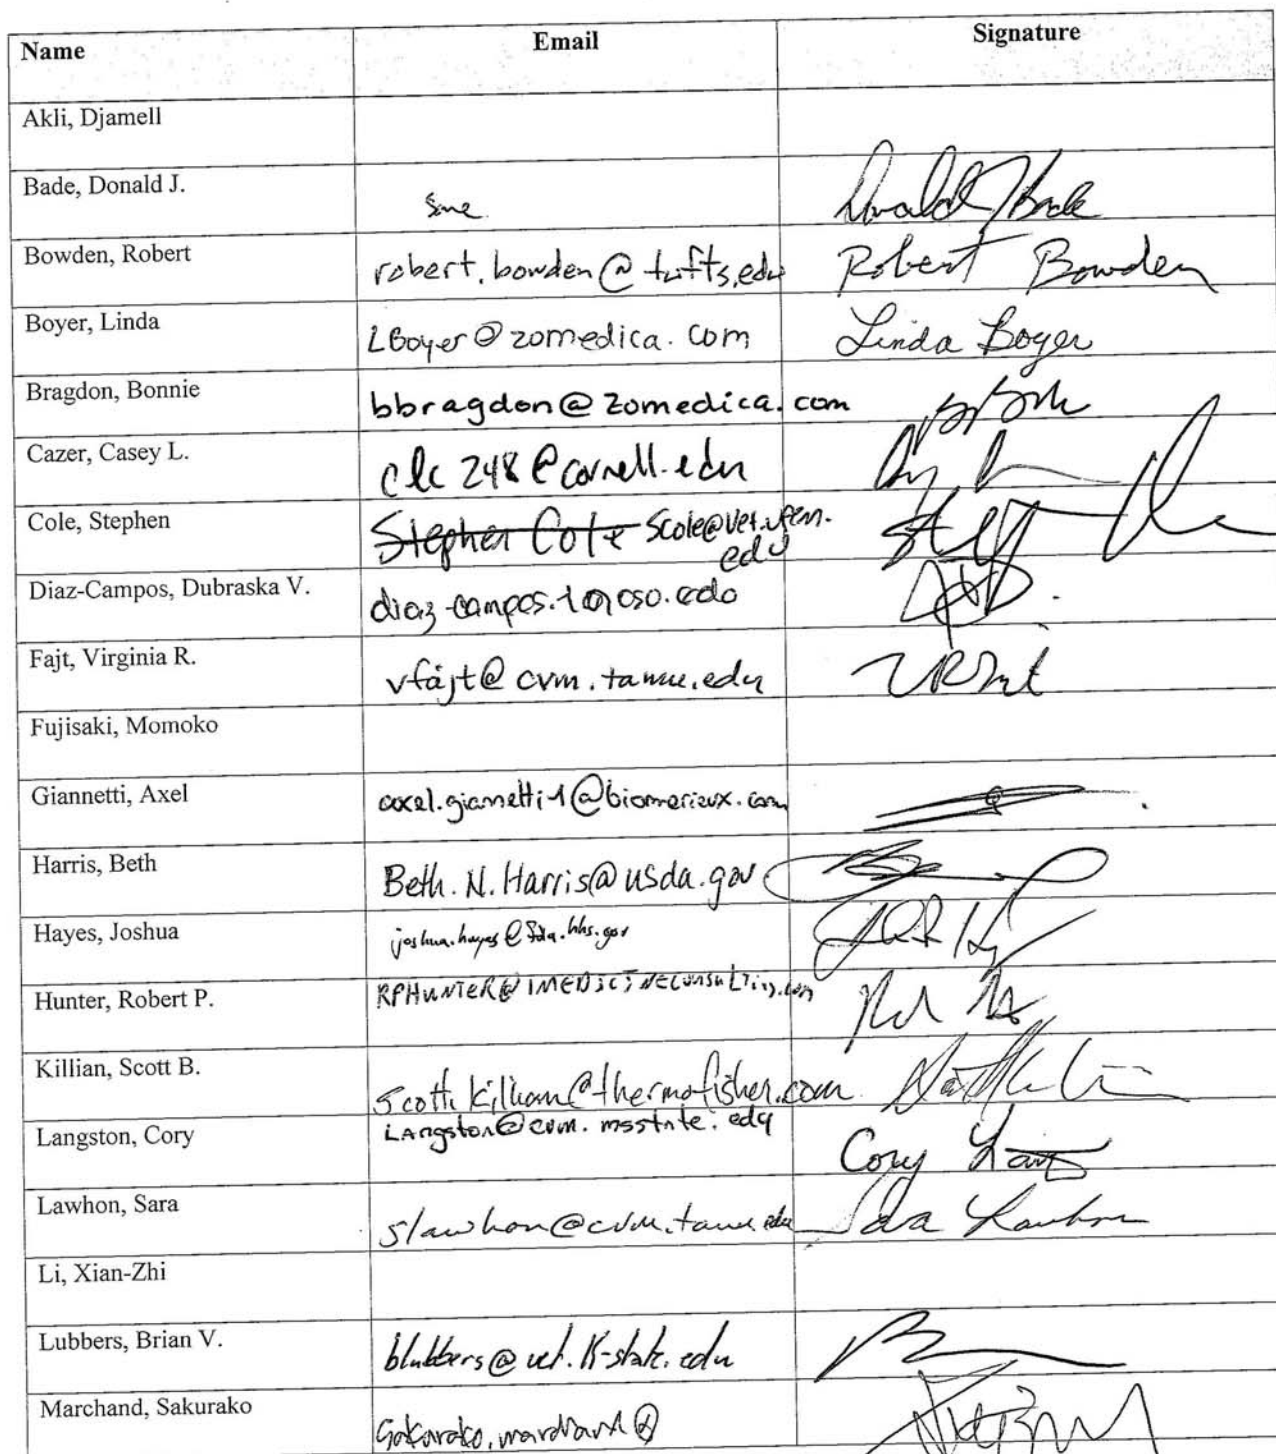 Name Email Signature
Akli, Djamell
Bade, Donald J. same Donald J Bade
Bowden, Robert robert.bowden@tufts.edu Robert Bowden
Boyer, Linda LBoyer@zomedica.com Linda Boyer
Bragdon, Bonnie bbragdon@zomedica.com
Cazer, Casey L. clc248@cornell.edu
Cole, Stephen Stephen Cole Scole@vet.upenn.
edu
Diaz-Campos, Dubraska V. diaz-campos.1@osu.edu
Fajt, Virginia R. vfajt@cvm.tamu.edu
Fujisaki, Momoko
Giannetti, Axel axel.giannetti-1@biomerieux.com
Harris, Beth Beth.N.Harris@usda.gov
Hayes, Joshua joshua.hayes@fda.hhs.gov
Hunter, Robert P. RPHUNTER@1MEDICINECONSULTing.com
Killian, Scott B. scott.killian@thermofisher.com
Langston, Cory LAngston@cvm.msstate.edu Cory Lang
Lawhon, Sara slawhon@cvm.tamu.edu Sara Lawhon
Li, Xian-Zhi
Lubbers, Brian V. blubbers@vet.k-state.edu
Marchand, Sakurako Sakurako.marchand@